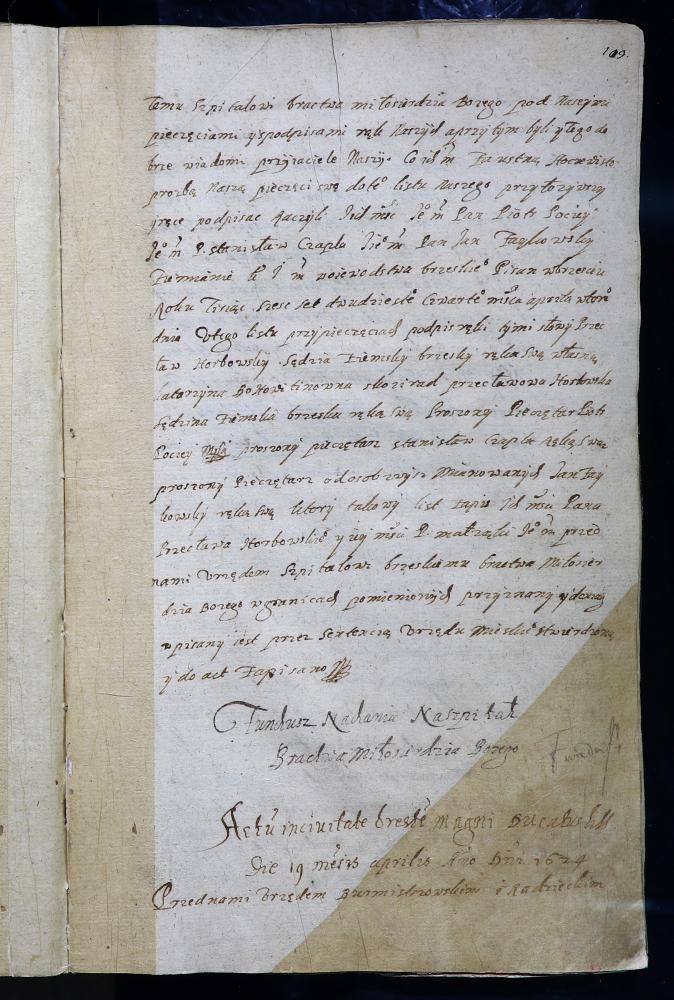 109.
temu Szpitalowi bractwa miłosierdzia Bozego pod Naszymi
pieczęciami y spodpisami rąk Naszych a przy tym byli y tego do
brze wiadomi przyiaciele Naszy
prozbę Naszą pieczęci swe do te° listu Naszego przyłozywszy
y ręce podpisac raczyli Ich mśc Je° m Pan Piotr Pociey
Je° m P. Stanisław Czapla Je° m Pan Jan
Ziemianie woiewodstwa brzeskie° Pisan w brzesciu
Roku Tisiąc szesc set dwudzieste czwarte° mśca aprila
dnia U tego listu przy pieczęciach podpis ręki tymi słowy Prec
ław Horbowsky Sędzia Ziemsky brzesky ręką swą własną
Katarzyna przecławowa Horbowska
Sędzina Ziemska brzeska ręką swą Proszony Pieczętarz Piotr
Pociey proszony pieczętarz Stanisław Czapla ręką swą
proszony Pieczętarz od osob wysz Mianowanych Jan
ręką swą ktory takowy list Zapis Ich mśći Pana
Przecława Horbowskie° y iey mśći P. małząki Je° m przed
nami Urzędem Szpitalowi brzeskiemu bractwa Miłosier
dzia Bozego w granicach pomienionych przyznany
wpisany iest przez Sentencią Urzędu Mieskie° stwierdzony
y do act Zapisano
Fundusz Nadania Naszpital
Bractwa Miłosierdzia Bozego
Fundusz
Actu in civitate Breste magni Ducatus
Die 19 mesis aprilis Año Dni 1624
Przed nami Urzędem Burmistrzowskim i Radzieckim